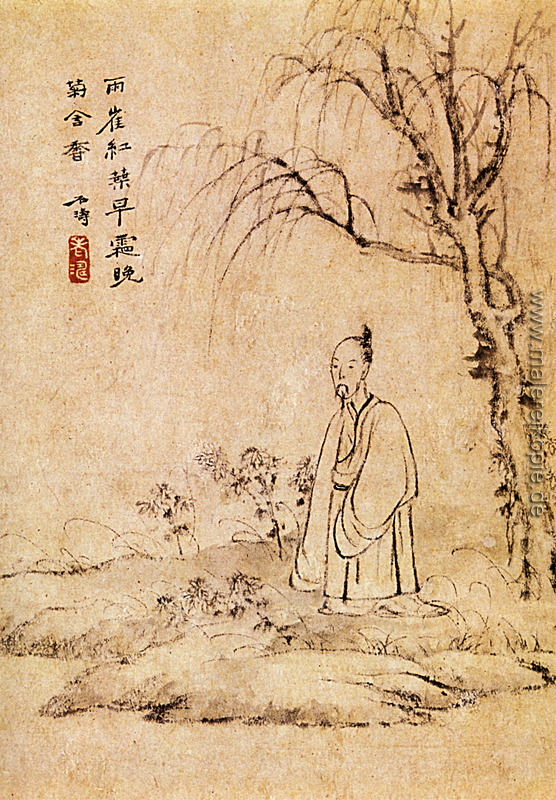 雨崔紅葉早霜晚
菊含香
石濤
老濤
www.malereikopie.de